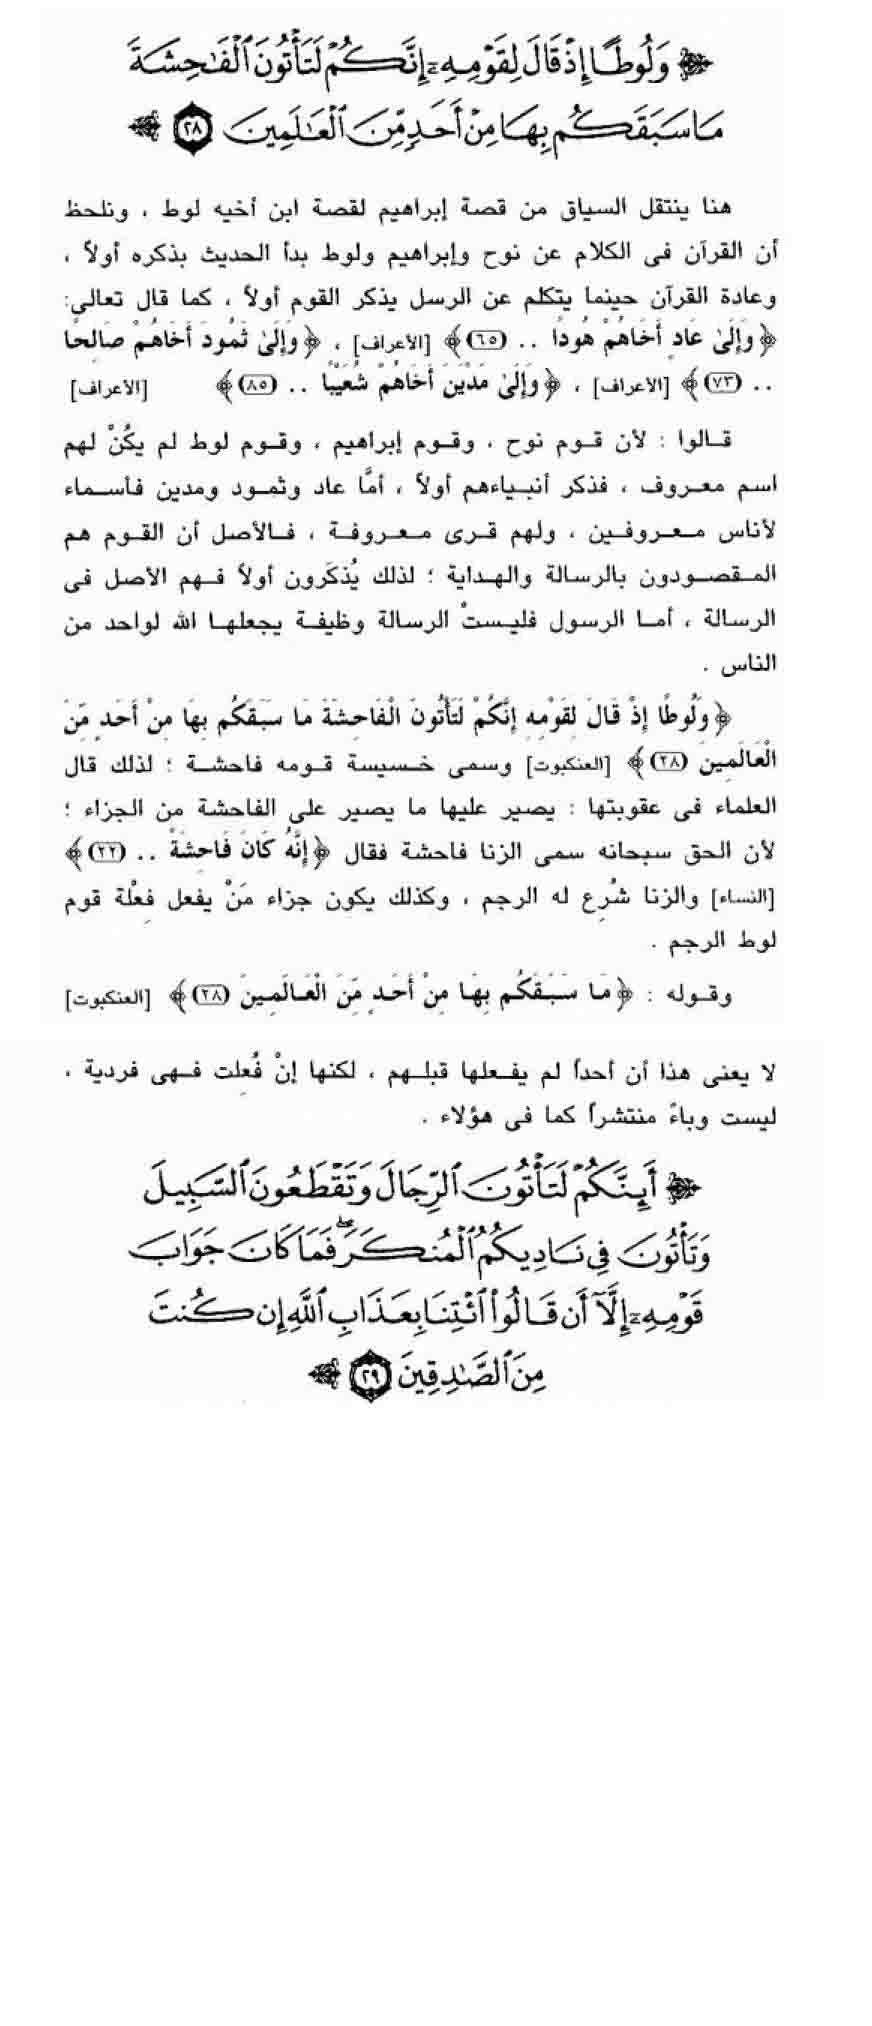 ﴿ وَلُوطًا إِذْ قَالَ لِقَوْمِهِۦٓ إِنَّكُمْ لَتَأْتُونَ ٱلْفَٰحِشَةَ
مَا سَبَقَكُم بِهَا مِنْ أَحَدٍ مِّنَ ٱلْعَٰلَمِينَ ٢٨ ﴾
هنا ينتقل السياق من قصة إبراهيم لقصة ابن أخيه لوط ، ونلحظ
أن القرآن فى الكلام عن نوح وإبراهيم ولوط بدأ الحديث بذكره أولاً ،
وعادة القرآن حينما يتكلم عن الرسل يذكر القوم أولاً ، كما قال تعالى:
﴿ وَإِلَىٰ عَادٍ أَخَاهُمْ هُودًا .. (٦٥) ﴾ [الأعراف] ، ﴿ وَإِلَىٰ ثَمُودَ أَخَاهُمْ صَالِحًا
.. (٧٣) ﴾ [الأعراف] ، ﴿ وَإِلَىٰ مَدْيَنَ أَخَاهُمْ شُعَيْبًا .. (٨٥) ﴾ [الأعراف]
قالوا : لأن قوم نوح ، وقوم إبراهيم ، وقوم لوط لم يكُنْ لهم
اسم معروف ، فذكر أنبياءهم أولاً ، أمَّا عاد وثمود ومدين فأسماء
لأناس معروفين ، ولهم قرى معروفة ، فالأصل أن القوم هم
المقصودون بالرسالة والهداية ؛ لذلك يُذكَرون أولاً فهم الأصل فى
الرسالة ، أما الرسول فليستْ الرسالة وظيفة يجعلها الله لواحد من
الناس .
﴿ وَلُوطًا إِذْ قَالَ لِقَوْمِهِ إِنَّكُمْ لَتَأْتُونَ الْفَاحِشَةَ مَا سَبَقَكُم بِهَا مِنْ أَحَدٍ مِّنَ
الْعَالَمِينَ (٢٨) ﴾ [العنكبوت] وسمى خسيسة قومه فاحشة ؛ لذلك قال
العلماء فى عقوبتها : يصير عليها ما يصير على الفاحشة من الجزاء ؛
لأن الحق سبحانه سمى الزنا فاحشة فقال ﴿ إِنَّهُ كَانَ فَاحِشَةً .. (٢٢) ﴾
[النساء] والزنا شُرِع له الرجم ، وكذلك يكون جزاء مَنْ يفعل فِعْلة قوم
لوط الرجم .
وقوله : ﴿ مَا سَبَقَكُم بِهَا مِنْ أَحَدٍ مِّنَ الْعَالَمِينَ (٢٨) ﴾ [العنكبوت]
لا يعنى هذا أن أحداً لم يفعلها قبلهم ، لكنها إنْ فُعِلت فهى فردية ،
ليست وباءً منتشراً كما فى هؤلاء .
﴿ أَئِنَّكُمْ لَتَأْتُونَ ٱلرِّجَالَ وَتَقْطَعُونَ ٱلسَّبِيلَ
وَتَأْتُونَ فِى نَادِيكُمُ ٱلْمُنكَرَ ۖ فَمَا كَانَ جَوَابَ
قَوْمِهِۦٓ إِلَّآ أَن قَالُوا۟ ٱئْتِنَا بِعَذَابِ ٱللَّهِ إِن كُنتَ
مِنَ ٱلصَّٰدِقِينَ ٢٩ ﴾